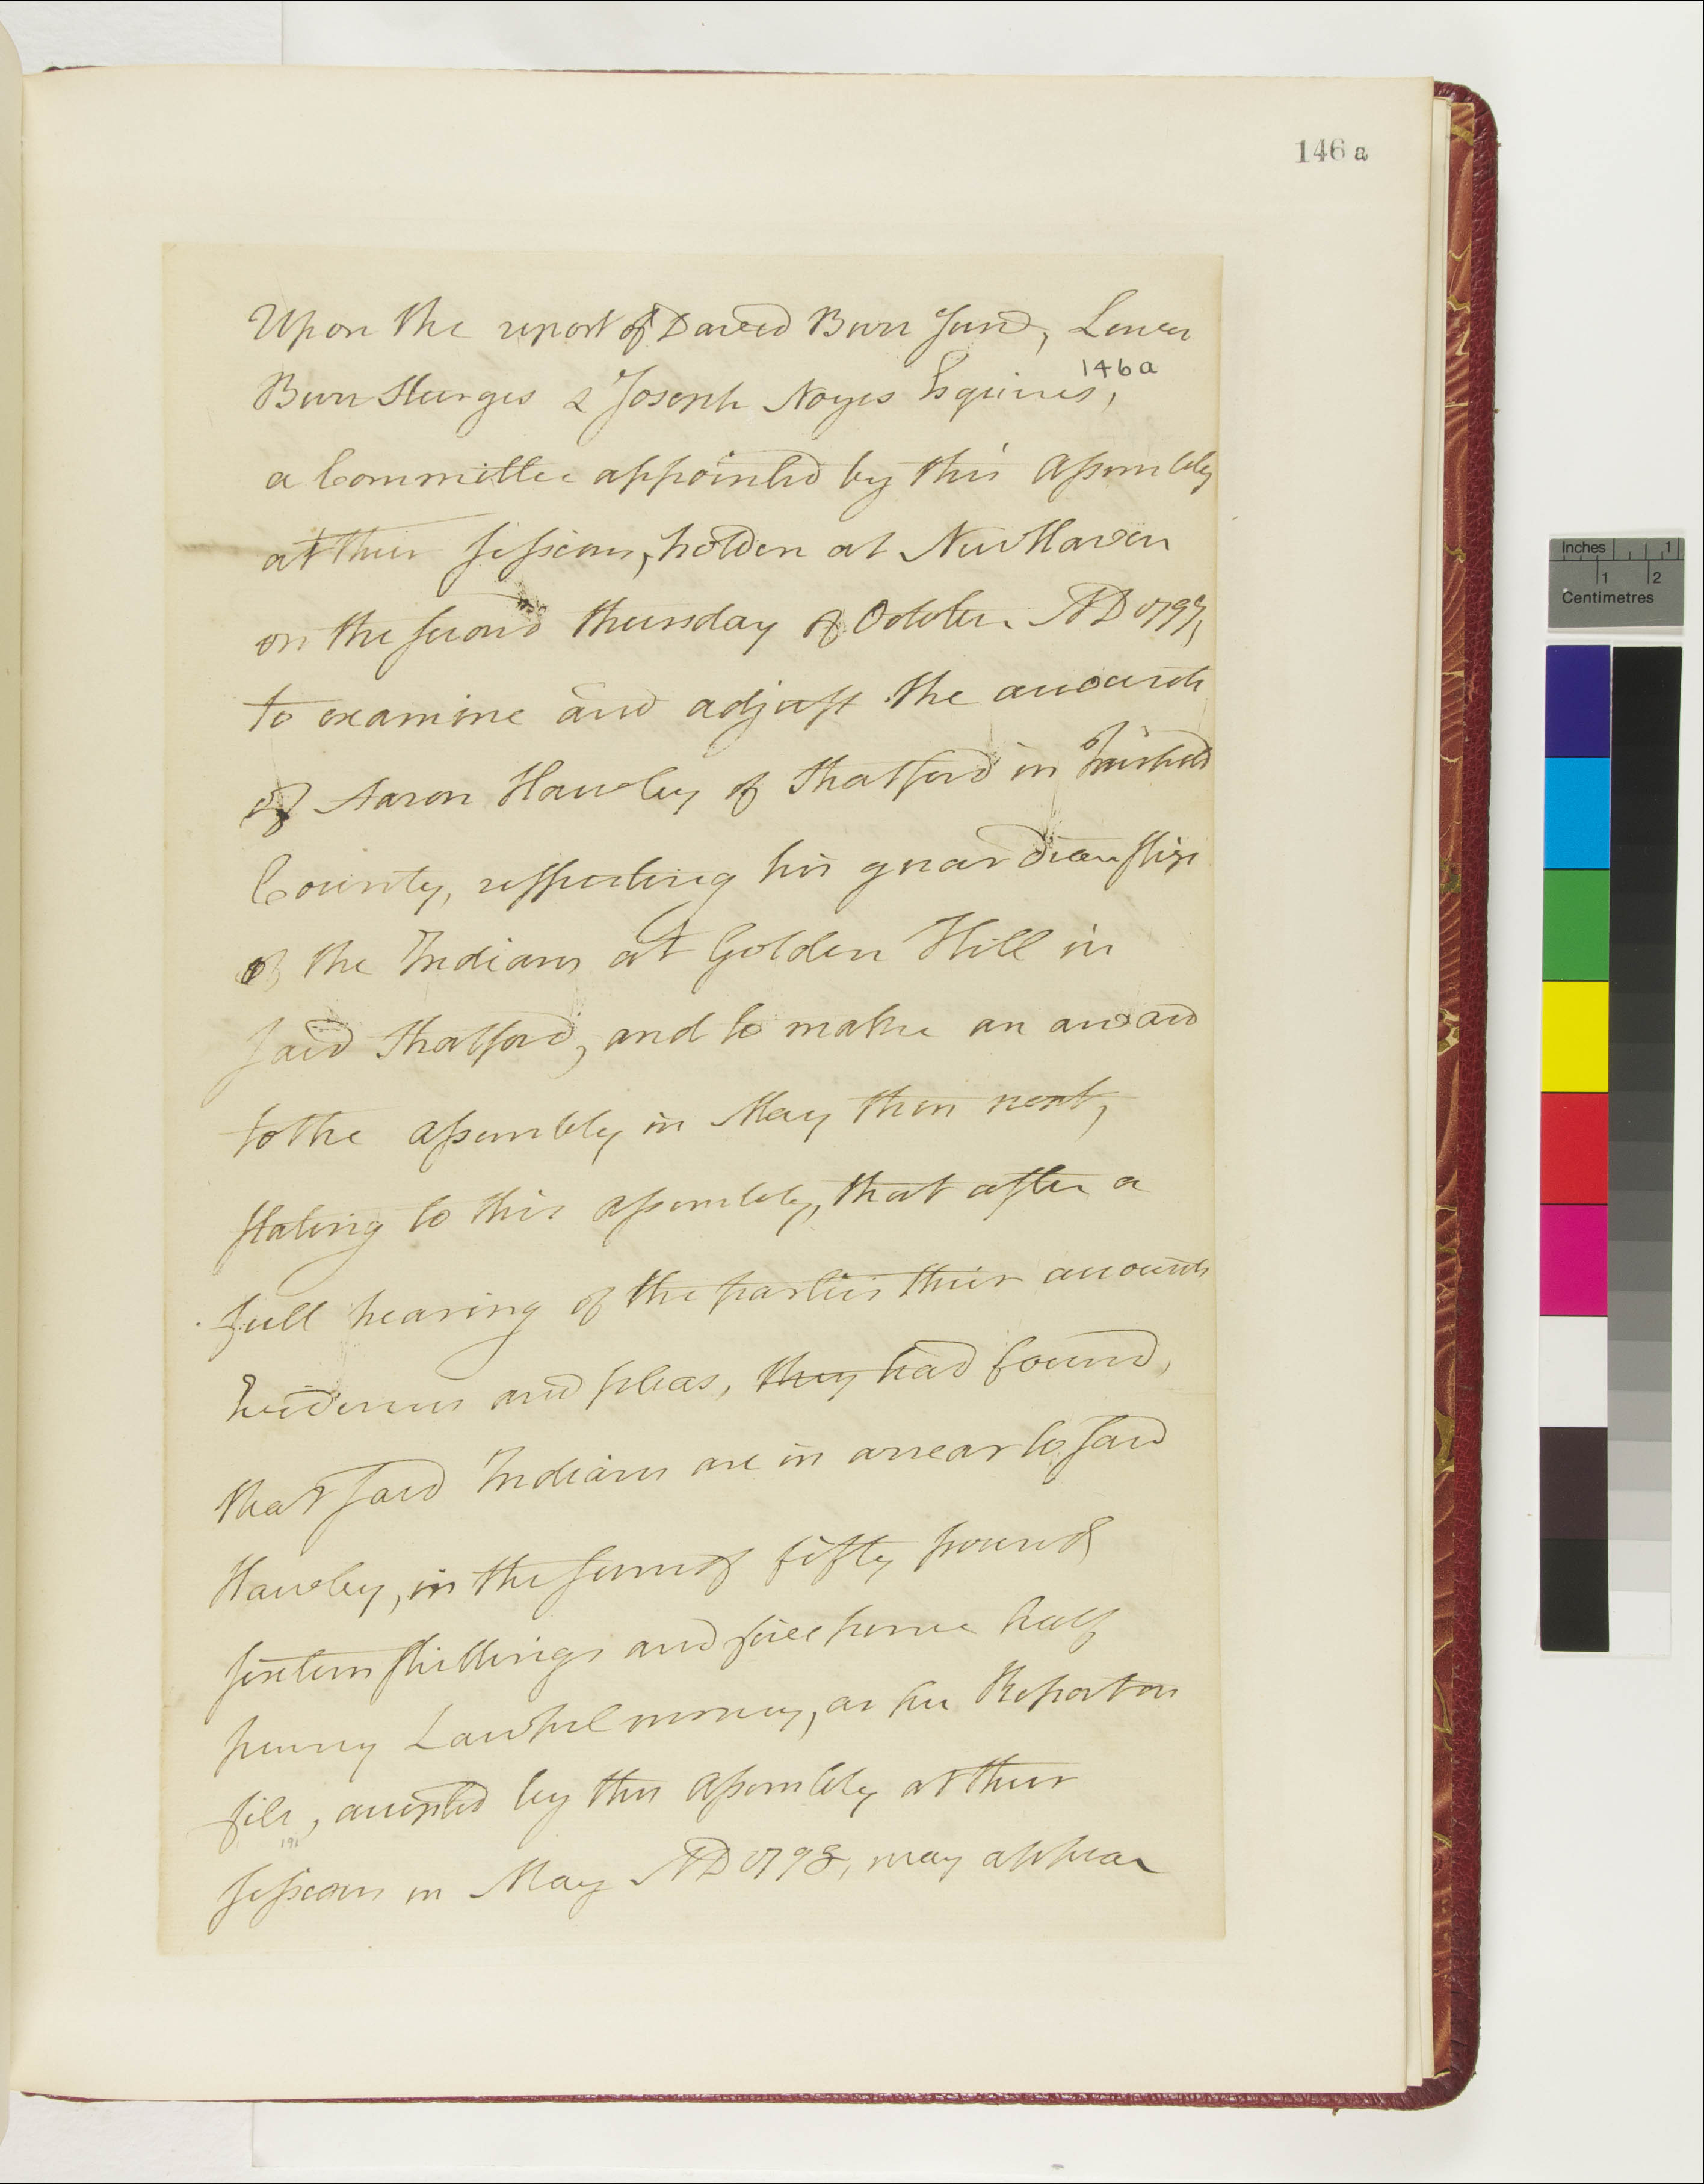 146 a
Upon the report of David Burr Jund, Lewis
146a
Burr Sturges & Joseph Noyes Esquires,
a Committee appointed by this Assembly
at their sessions, holden at New Haven
on the second thursday of October AD 1797,
to examine and adjust the accounts
of Aaron Hawley of Stratford in Fairfield
County, respecting his guardianship
of the Indians at Golden Hill in
said Stratford, and to make an award
to the assembly in May then next,
stating to this assembly, that after a
full hearing of the parties their accounts
Evidences and pleas, they had found,
that said Indians are in arrear to said
Hawley, in the sum of fifty pounds
sixteen shillings and five pence half
penny Lawful money, as per Report on
file, accepted by this assembly at their
191
sessions in May AD 1798, may appear
Inches 1
1 2
Centimetres